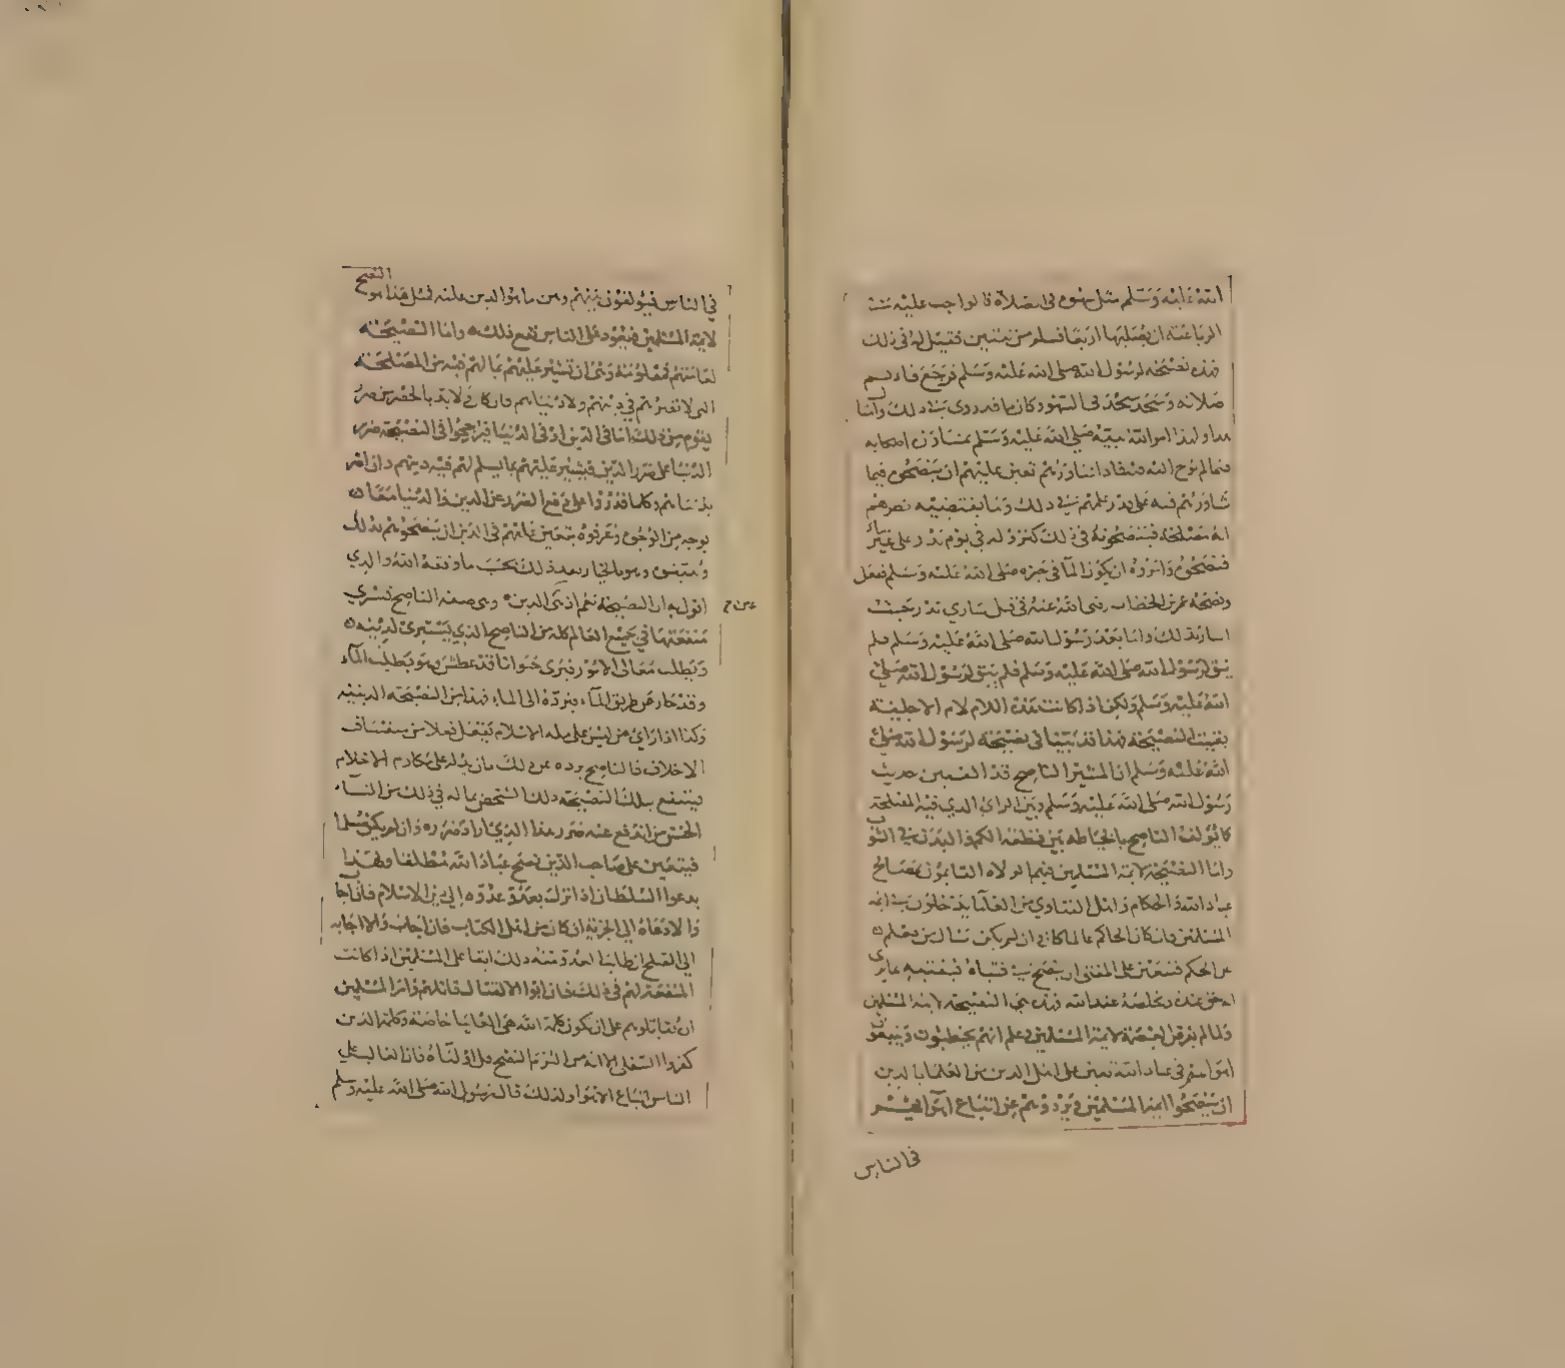 الله عليه وسلم مثل سهوه في الصلاة فالواجب عليه
الرباعية ان يصليها اربعا فسلم من اثنتين فقيل له في ذلك
فهذه نصيحة لرسول الله صلى الله عليه وسلم فرجع فاتم
صلاته وسجد سجدتي السهو وكان ما قد روي في ذلك وأما
ولهذا امر الله نبيه صلى الله عليه وسلم بمشاورة اصحابه
فيما لم يوح اليه فيه فاذا شاورهم تعين عليهم ان ينصحوه فيما
شاورهم فيه على قدر علمهم في ذلك وما يقتضيه نصرهم
انه مصلحة فينصحونه في ذلك كنزوله في يوم بدر على غير ماء
فنصحوه وأمروه ان يكون الماء في حيزه صلى الله عليه وسلم ففعل
ونصحه عمر بن الخطاب رضي الله عنه في قتل أسارى بدر حين
اشار بذلك وأما بعد رسول الله صلى الله عليه وسلم فلم
يبق لرسول الله صلى الله عليه وسلم فلم يبق لرسول الله صلى
الله عليه وسلم ولكن اذا كانت هذه اللام لام الاجلية
بقيت النصيحة فهذا قد بينا في نصيحة لرسول الله صلى
الله عليه وسلم ان المشير الناصح قد
رسول الله صلى الله عليه وسلم وبين الرأي الذي فيه المصلحة
كما يؤلف الناصح بالخياطة بين قطعة الكم والبدن في الثوب
وأما النصيحة لائمة المسلمين فهم الولاة القائمون بمصالح
عباد الله والحكام وأهل الفتاوى من العلماء يدخلون في ائمة
المسلمين فان كان الحاكم عالما كان وان لم يكن سأل من يعلم
عن الحكم فتعين على المفتي ان ينصح في فتياه
عند الله فهذه هي النصيحة لائمة المسلمين
ولما لم يفرض العصمة لائمة المسلمين وعلم انهم يخطئون ويتبعون
اهواءهم في عباد الله تعين على اهل الدين من العلماء بالدين
ان ينصحوا ائمة المسلمين ويردوهم عن اتباع اهوائهم
في الناس
في الناس فيؤلفون بينهم وبين ما هو الدين عليه فمثل هذا هو النصح
لائمة المسلمين فيعود على الناس نفع ذلك وأما النصيحة
لعامتهم فمعلومة وهي ان تشير عليهم بما لهم فيه من المصلحة
التي لا تضرهم في دينهم ولا دنياهم فان كان ولا بد
يقوم من ذلك اما في الدين او في الدنيا فيرجحوا في النصيحة ضرر
الدنيا على ضرر الدين فيشير عليهم بما يسلم لهم فيه دينهم وان اضر
بدنياهم وكلما قدروا على دفع الضرر عن الدين والدنيا معا
بوجه من الوجوه وعرفوه تعين عليهم في الدين ان ينصحوهم بذلك
ويبينوه وهو بالخيار بعد ذلك بحسب ما وفقه الله والذي
اقول به ان النصيحة تعم اذ هي الدين وهي صفة الناصح فتسري
منفعتها في جميع العالم كله من الناصح الذي يستبرئ لدينه
ويطلب معالي الامور فيرى حيوانا قد عطش وهو يطلب الماء
وقد حار عن طريق الماء فيرده الى الماء فهذا من النصيحة الدينية
وكذا اذا رأى من ليس على ملة الاسلام يفعل فعلا من سفساف
الاخلاق فالناصح يرده عن ذلك مما يدله على مكارم الاخلاق
فينتفع بتلك النصيحة ذلك الشخص بما له في ذلك من الثناء
الحسن من اندفع عنه ضرر هذا الذي اراد ضرره وان لم يكن مسلما
فيتعين على صاحب الدين نصح عباد الله مطلقا ولهذا
يدعوا السلطان اذا نزل بعدوه عدوه الى دين الاسلام فان اجاب
والا دعاه الى الجزية ان كان من اهل الكتاب فان اجاب والا اجابه
الى الصلح ابقا على المسلمين اذا كانت
المنفعة لهم في ذلك فان ابوا الا القتال قاتلهم وأمر المسلمين
ان يقاتلوهم على ان يكون كلمة الله هي العليا خاصة وكلمة الذين
كفروا السفلى الا انه من التزم النصح قل اولياؤه فان الغالب على
الناس اتباع الاهواء ولذلك قال رسول الله صلى الله عليه وسلم